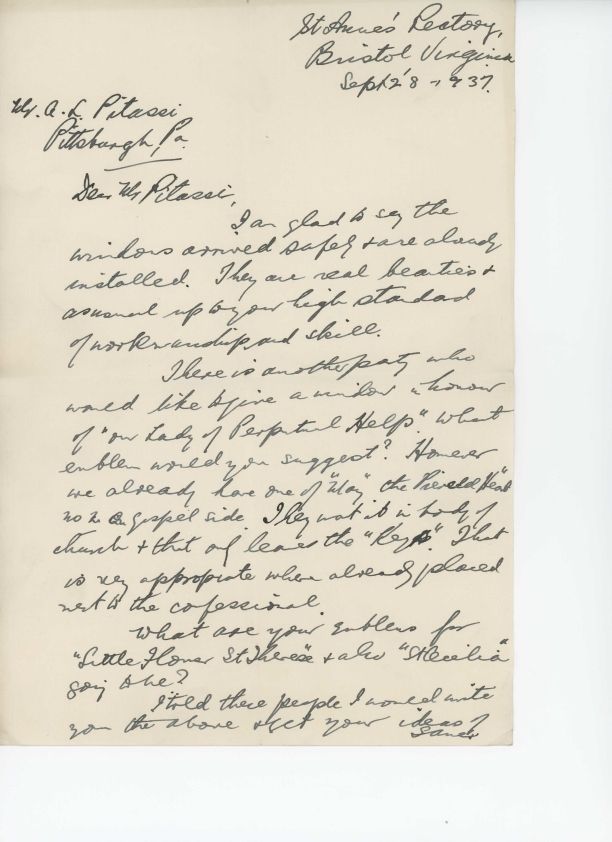 St Anne's Rectory,
Bristol Virginia
Sept 28 - 1937.
Mr. A. L. Pitassi
Pittsburgh, Pa.
Dear Mr Pitassi,
I am glad to say the
windows arrived safely & are already
installed. They are real beauties &
as usual up to your high standard
of workmanship and skill.
There is another party who
would like to give a window in honour
of "our Lady of Perpetual Help". What
emblem would you suggest? However
we already have one of "Mary" the Pierced Heart
no 2 on gospel side. They want it in body of
church & that only leaves the "Keys". That
is very appropriate where already placed
next to the confessional.
What are your emblems for
"Little Flower St Therese" & also "St Cecilia"
going to be?
I told these people I would write
you the above & get your ideas of
same